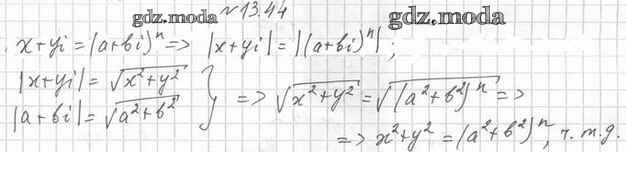 gdz.moda
№13.44
gdz.moda
x+yi=(a+bi)ⁿ => |x+yi|=|(a+bi)ⁿ|;
|x+yi|=√(x²+y²)
|a+bi|=√(a²+b²) } => √(x²+y²)=√((a²+b²)ⁿ) =>
=> x²+y²=(a²+b²)ⁿ, ч.т.д.